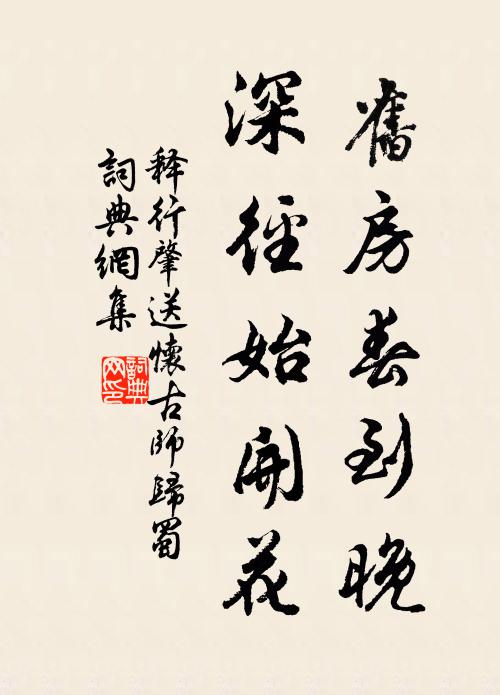 舊房春到晚
深徑始開花
释行肇送懷古師歸蜀
詞典網集
詞典
网印